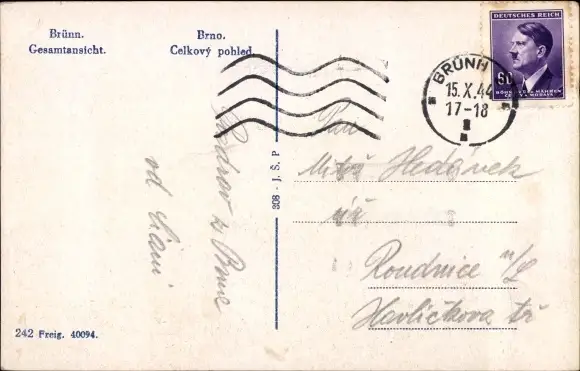 Brünn.
Gesamtansicht.
Brno.
Celkový pohled.
DEUTSCHES REICH
60
BÖHMEN U. MÄHREN
ČECHY A MORAVA
BRÜNN
15.X.44
17-18
Pan
Hedávek
Roudnice n/L
Havlíčkova tř
Pozdrav z Brna
od
308 - J. Š. P.
242 Freig. 40094.